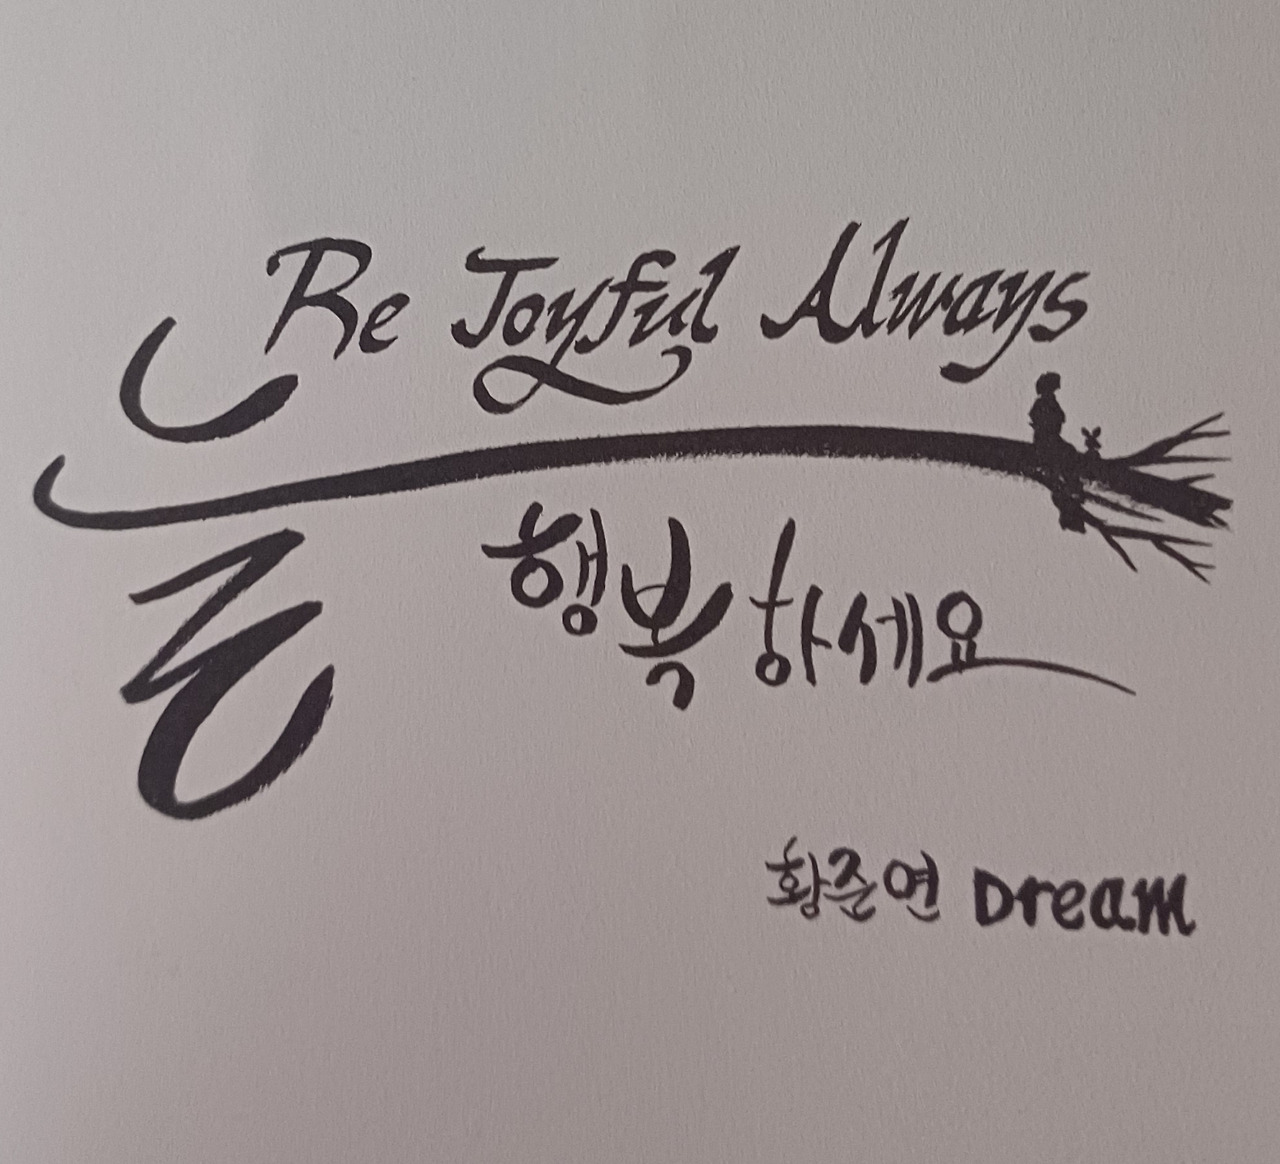 Be Joyful Always
늘 행복하세요
황준연 Dream